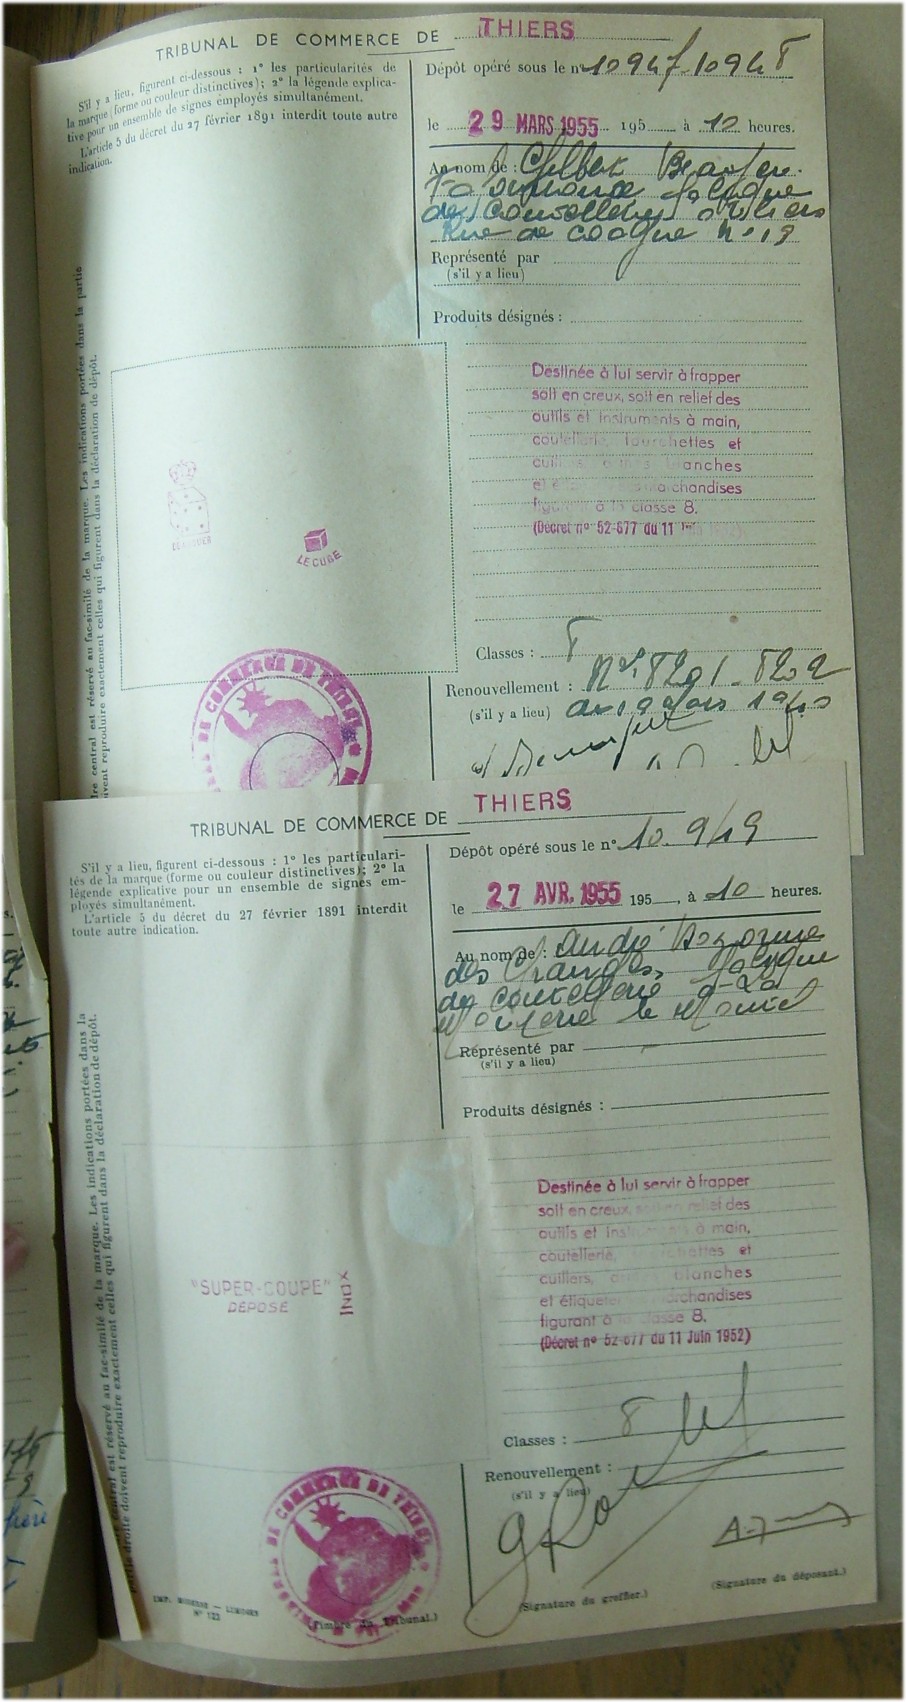 TRIBUNAL DE COMMERCE DE THIERS
S'il y a lieu, figurent ci-dessous : 1° les particularités de
la marque (forme ou couleur distinctives) ; 2° la légende explica-
tive pour un ensemble de signes employés simultanément.
L'article 5 du décret du 27 février 1891 interdit toute autre
indication.
Dépôt opéré sous le n° 10947-10948
le 29 MARS 1955 195 à 10 heures.
Au nom de : Gilbert
de
Rue de n° 19
Représenté par
(s'il y a lieu)
Produits désignés :
Destinée à lui servir à frapper
soit en creux, soit en relief des
outils et instruments à main,
coutellerie, fourchettes et
cuillers, armes blanches
et marchandises
figurant à la classe 8.
(Décret n° 52-677 du 11 Juin 1952)
LE CUBE
dre central est réservé au fac-similé de la marque. Les indications portées dans la partie
ivent reproduire exactement celles qui figurent dans la déclaration de dépôt.
Classes : 8
Renouvellement : Nos 8201-8202
(s'il y a lieu) du 19 Mars 1940
TRIBUNAL DE COMMERCE DE THIERS
TRIBUNAL DE COMMERCE DE THIERS
S'il y a lieu, figurent ci-dessous : 1° les particulari-
tés de la marque (forme ou couleur distinctives) ; 2° la
légende explicative pour un ensemble de signes em-
ployés simultanément.
L'article 5 du décret du 27 février 1891 interdit
toute autre indication.
Dépôt opéré sous le n° 10.949
le 27 AVR. 1955 195 , à 10 heures.
Au nom de : André
des Granges,
de coutellerie à La
le
Représenté par
(s'il y a lieu)
Produits désignés :
Destinée à lui servir à frapper
soit en creux, soit en relief des
outils et instruments à main,
coutellerie, fourchettes et
cuillers, armes blanches
et étiqueter marchandises
figurant à la classe 8.
(Décret n° 52-677 du 11 Juin 1952)
"SUPER-COUPE"
DEPOSE
INOX
central est réservé au fac-similé de la marque. Les indications portées dans la
partie droite doivent reproduire exactement celles qui figurent dans la déclaration de dépôt.
Classes : 8
Renouvellement :
(s'il y a lieu)
TRIBUNAL DE COMMERCE DE THIERS
IMP. MODERNE — LIMOGES
N° 122
(Timbre du Tribunal.)
(Signature du greffier.)
(Signature du déposant.)